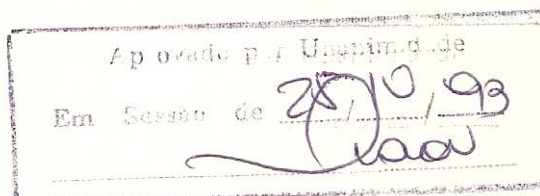 Aprovado por Unanimidade
Em Sessão de /10/93